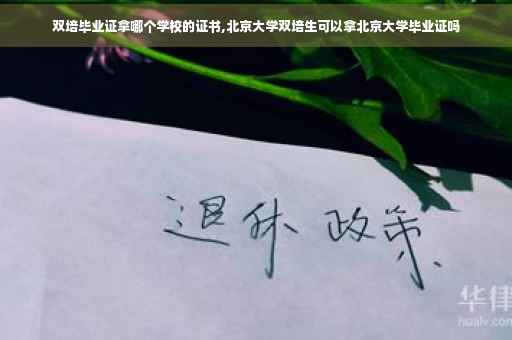 双培毕业证拿哪个学校的证书,北京大学双培生可以拿北京大学毕业证吗
退休 政策
华律
hualv.com